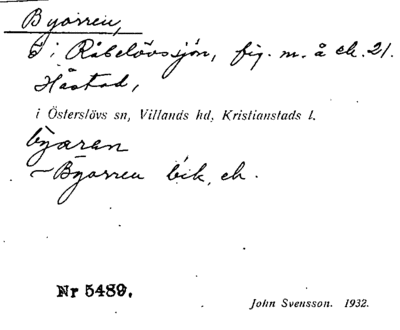 Byorren,
Ö i Råbelövssjön, fig. m. å ek. 21.
Håstad,
i Österslövs sn, Villands hd, Kristianstads l.
byaren
~ Byorren bik. ek.
Nr 5489.
John Svensson. 1932.